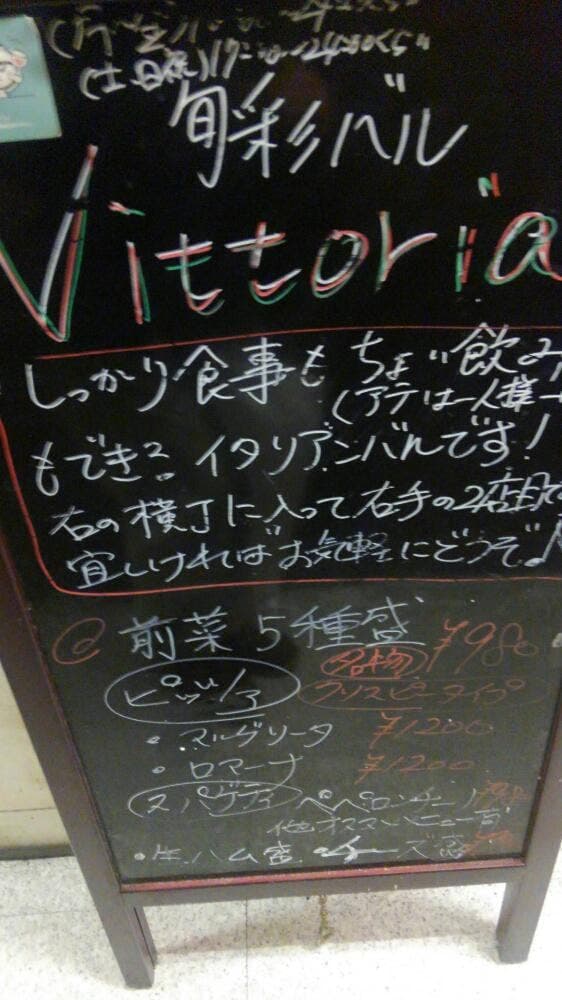 (土日祝)17:00〜24:00くらい
旬彩バル
Vittoria
しっかり食事もちょい飲み
(アテは一人様
もできる。イタリアンバルです!
右の横丁に入って右手の2店目
宜しければお気軽にどうぞ♪
前菜5種盛 ¥980
ピッツァ 名物 クリスピータイプ
・マルゲリータ ¥1200
・ロマーナ ¥1200
スパゲティ ペペロンチーノ
他オススメメニュー有
・生ハム盛 ・チーズ盛